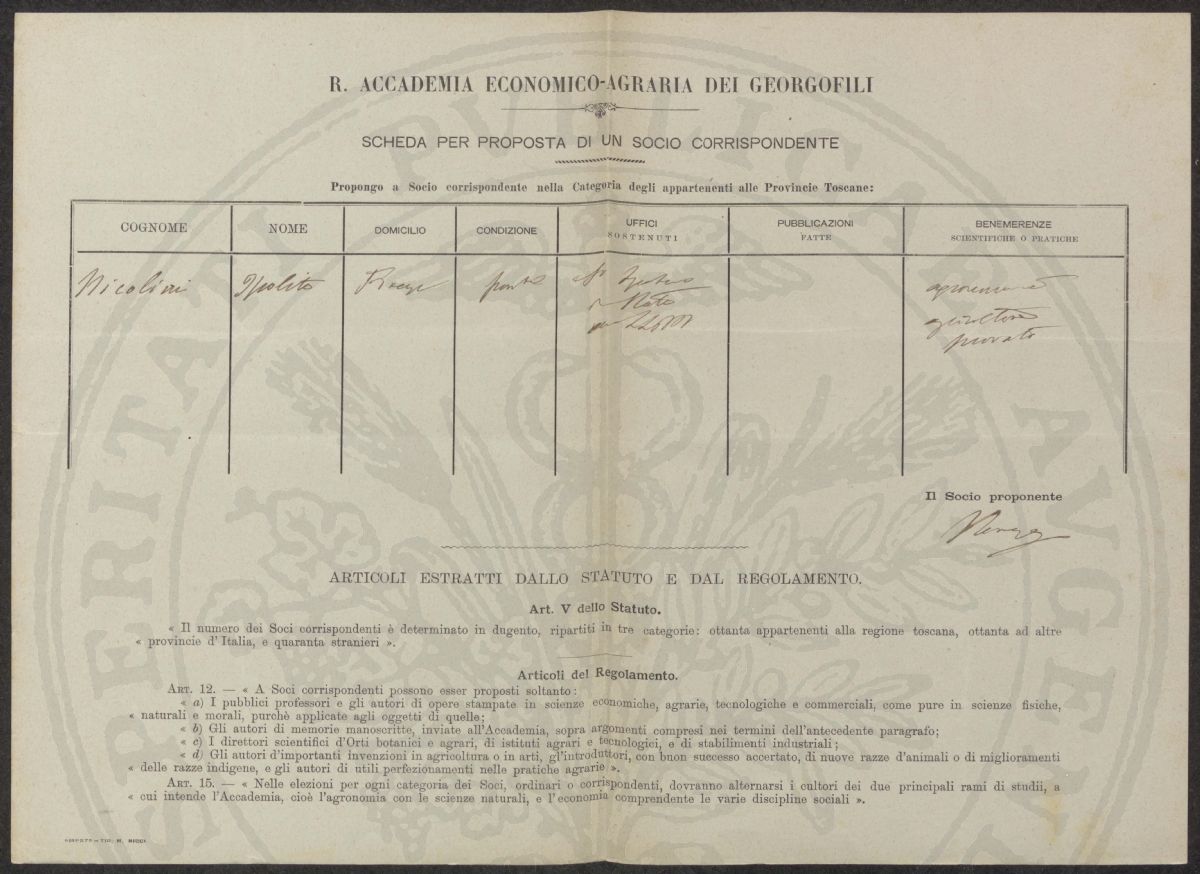 R. ACCADEMIA ECONOMICO-AGRARIA DEI GEORGOFILI
SCHEDA PER PROPOSTA DI UN SOCIO CORRISPONDENTE
Propongo a Socio corrispondente nella Categoria degli appartenenti alle Provincie Toscane:
COGNOME
NOME
DOMICILIO
CONDIZIONE
UFFICI
SOSTENUTI
PUBBLICAZIONI
FATTE
BENEMERENZE
SCIENTIFICHE O PRATICHE
Nicolini
Ipolito
Firenze
privato
Il Socio proponente
ARTICOLI ESTRATTI DALLO STATUTO E DAL REGOLAMENTO.
Art. V dello Statuto.
« Il numero dei Soci corrispondenti è determinato in dugento, ripartiti in tre categorie: ottanta appartenenti alla regione toscana, ottanta ad altre
« provincie d'Italia, e quaranta stranieri ».
Articoli del Regolamento.
ART. 12. — « A Soci corrispondenti possono esser proposti soltanto:
« a) I pubblici professori e gli autori di opere stampate in scienze economiche, agrarie, tecnologiche e commerciali, come pure in scienze fisiche,
« naturali e morali, purchè applicate agli oggetti di quelle;
« b) Gli autori di memorie manoscritte, inviate all'Accademia, sopra argomenti compresi nei termini dell'antecedente paragrafo;
« c) I direttori scientifici d'Orti botanici e agrari, di istituti agrari e tecnologici, e di stabilimenti industriali;
« d) Gli autori d'importanti invenzioni in agricoltura o in arti, gl'introduttori, con buon successo accertato, di nuove razze d'animali o di miglioramenti
« delle razze indigene, e gli autori di utili perfezionamenti nelle pratiche agrarie ».
ART. 15. — « Nelle elezioni per ogni categoria dei Soci, ordinari o corrispondenti, dovranno alternarsi i cultori dei due principali rami di studii, a
« cui intende l'Accademia, cioè l'agronomia con le scienze naturali, e l'economia comprendente le varie discipline sociali ».
TIP. M. RICCI